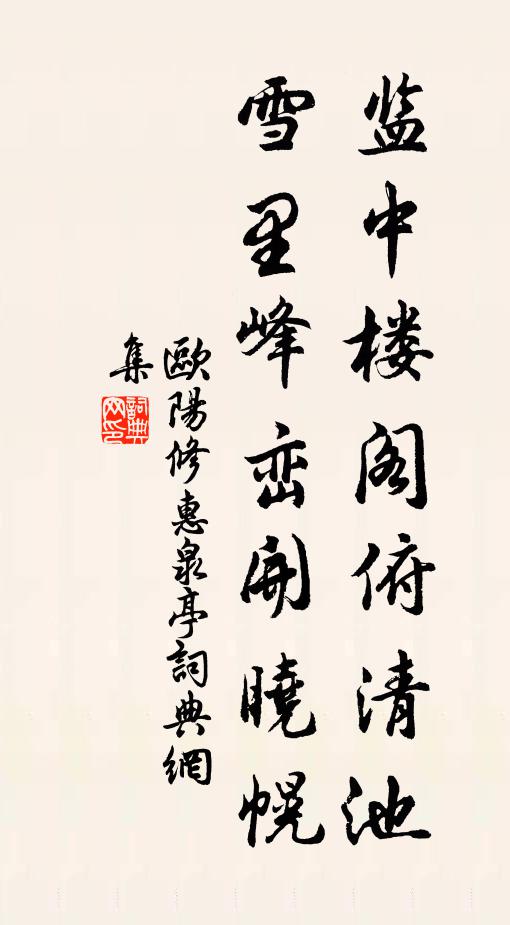 监中楼阁俯清池
雪里峰峦開曉幌
歐陽修惠泉亭詞典網
集
詞典网印